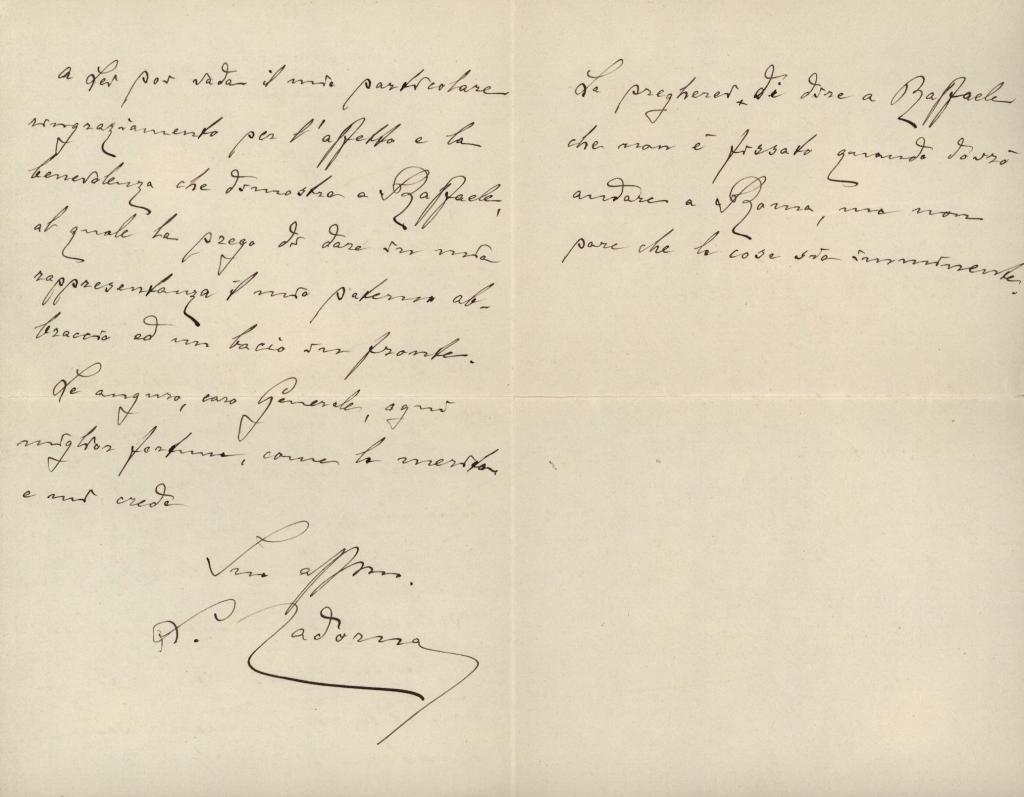 a Lei poi vada il mio particolare
ringraziamento per l'affetto e la
benevolenza che dimostra a Raffaele,
al quale La prego di dare in mia
rappresentanza il mio paterno ab-
braccio ed un bacio in fronte.
Le auguro, caro Generale, ogni
miglior fortuna, come la merita
e mi creda
Suo affmo.
L. Cadorna
La pregherei di dire a Raffaele
che non è fissato quando dovrò
andare a Roma, ma non
pare che la cosa sia imminente.